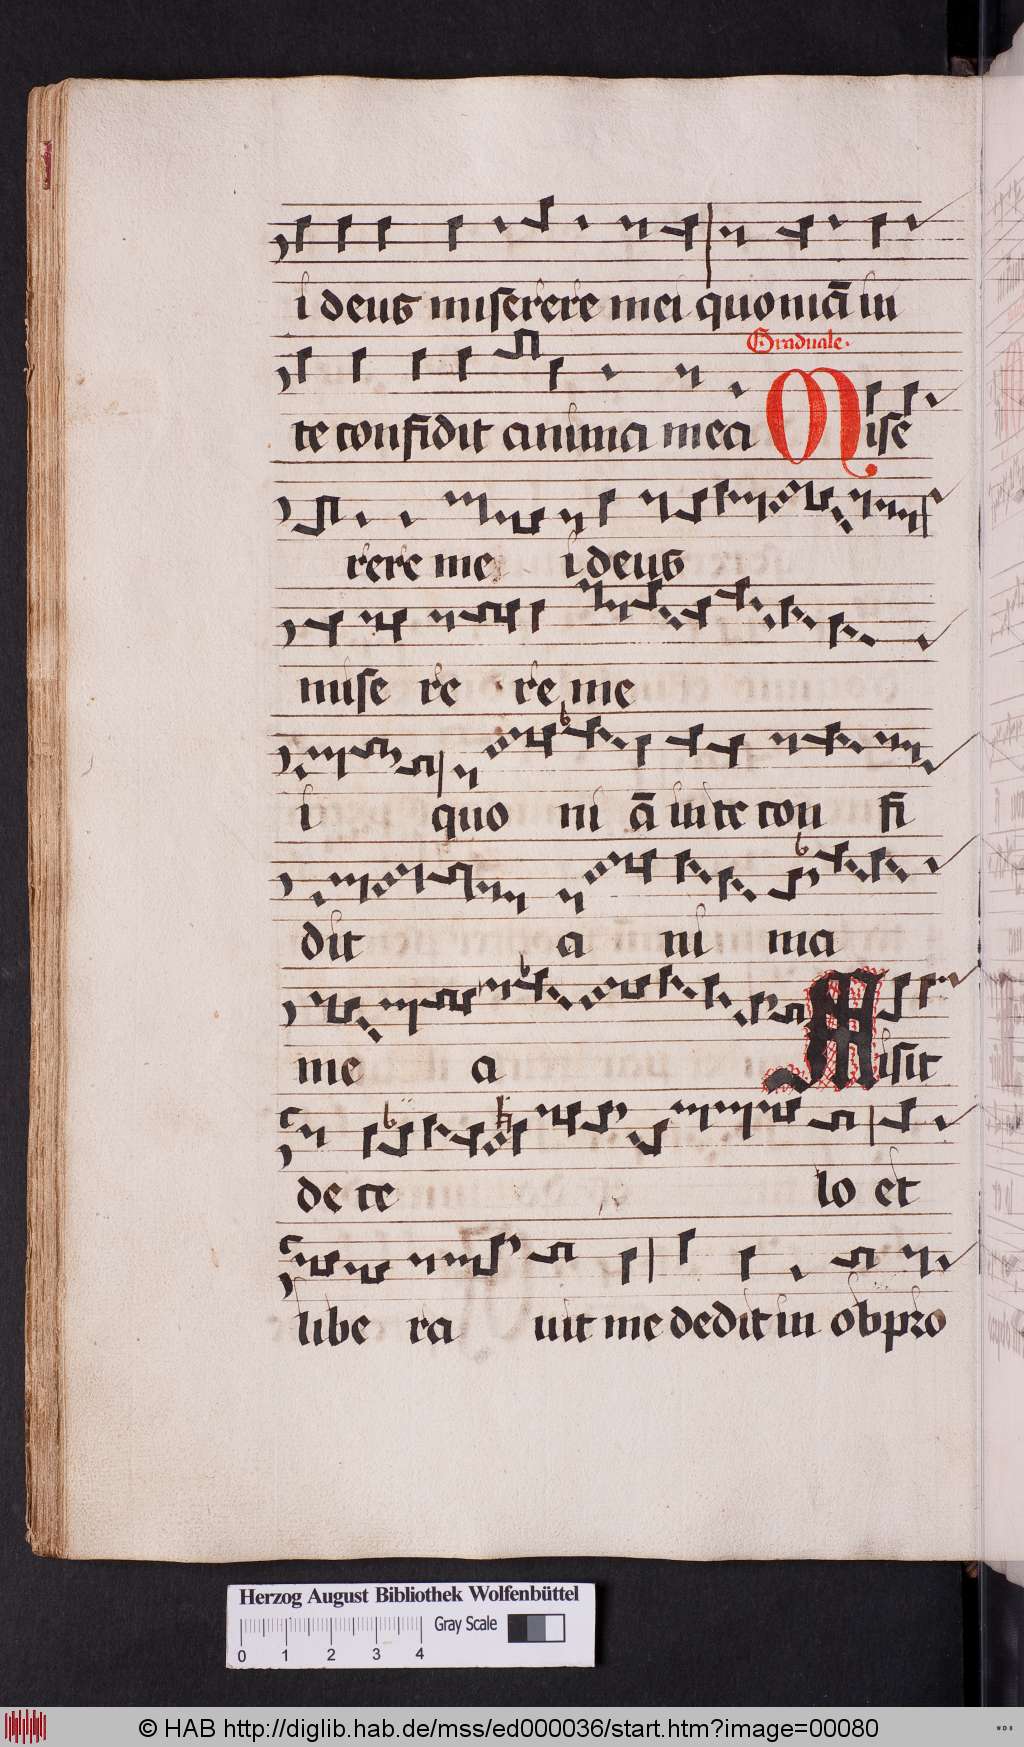 i deus miserere mei quoniā in
Graduale.
te confidit anima mea Mise
rere me i deus
mise re re me
i quo ni ā in te con fi
dit a ni ma
me a Misit
de ce lo et
libe ra uit me dedit in obpro
Herzog August Bibliothek Wolfenbüttel
Gray Scale
0 1 2 3 4
© HAB http://diglib.hab.de/mss/ed000036/start.htm?image=00080